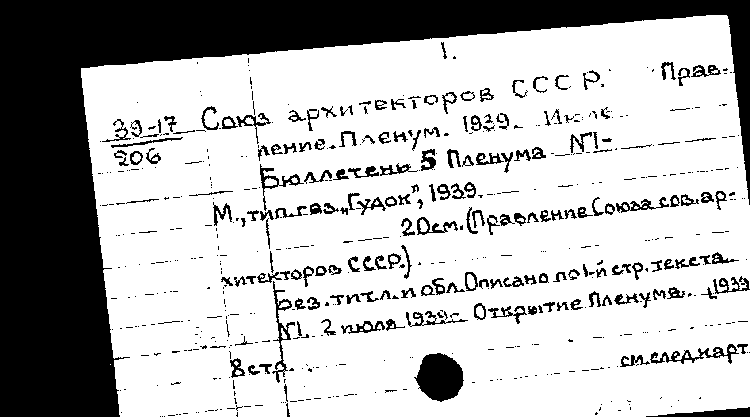 1.
39-17 Союз архитекторов СССР. Прав-
206
ление. Пленум. 1939. Июль
Бюллетень 5 Пленума №1-
М., тип. газ. „Гудок”, 1939.
20см. (Правление Союза сов. ар-
хитекторов СССР.)
Без. титл. и обл. Описано по 1-й стр. текста.
№1. 2 июля 1939г. Открытие Пленума. 1939
8 стр.
см. след. карт